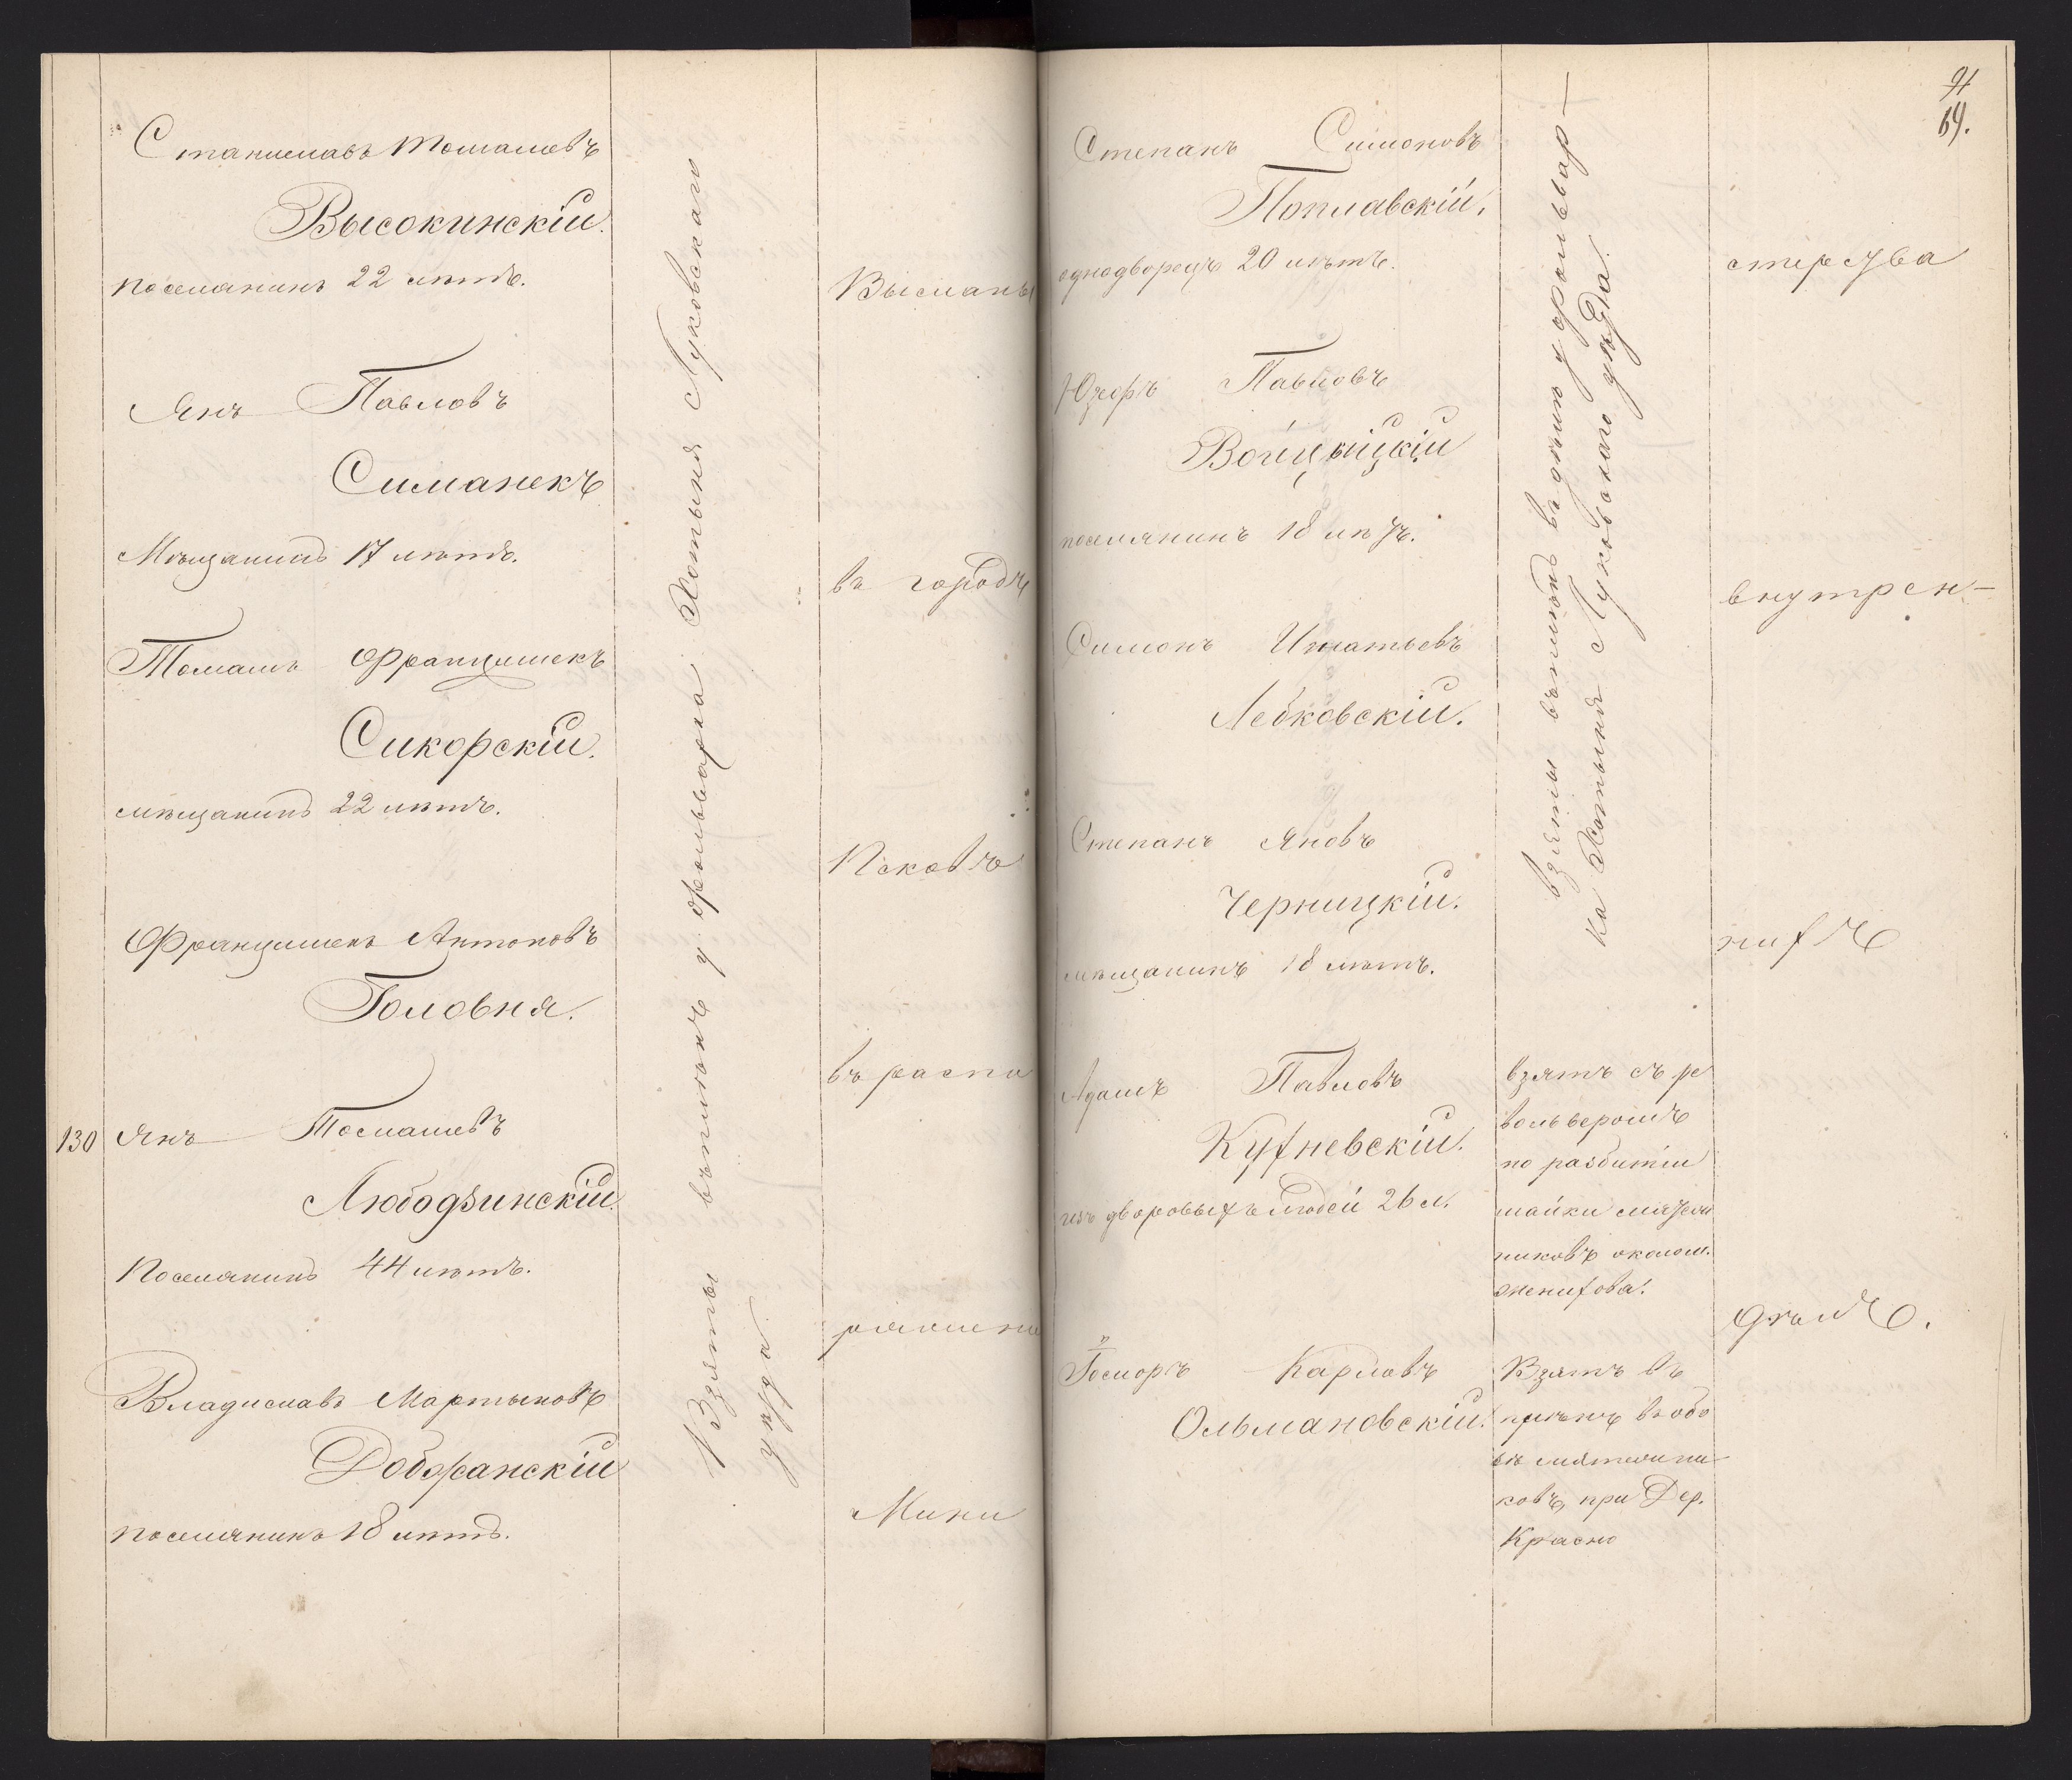 Станиславъ Томашевъ
Высокинскій.
поселянинъ 22 лѣтъ.
Янъ Павловъ
Симанекъ
Мѣщанинъ 17 лѣтъ.
Томашъ Францишекъ
Сикорскій.
мѣщанинъ 22 лѣтъ.
Францишекъ Антоновъ
Головня.
130 Янъ Томашевъ
Любодзинскій
Поселянинъ 44 лѣтъ.
Владиславъ Мартыновъ
Доборанскій
поселянинъ 18 лѣтъ.
Взяты въ плѣнъ у фольварка Хотыня Луковскаго
уѣзда.
Высланы
въ городъ
Псковъ
въ распо
ряжені
Мини
91
69.
Степанъ Симоновъ
Поплавскій,
однодворецъ 20 лѣтъ.
Юзефъ Павловъ
Войцѣицкій
поселянинъ 18 лѣтъ.
Симонъ Игнатьевъ
Лебковскій.
Степанъ Яновъ
Черницкій.
мѣщанинъ 18 лѣтъ.
Адамъ Павловъ
Кухневскій.
изъ дворовыхъ людей 26 л.
Карловъ
Ольмановскій.
взяты въ плѣнъ у фольвар-
ка Хотыня Луковскаго уѣзда.
взятъ съ ре
вольверомъ
по разбитіи
шайки мятеж
никовъ около м.
Женихова.
Взятъ въ
плѣнъ въ обо
зѣ мятежни-
ковъ, при Дер.
Красно
стерства
внутрен-
нихъ
дѣлъ.